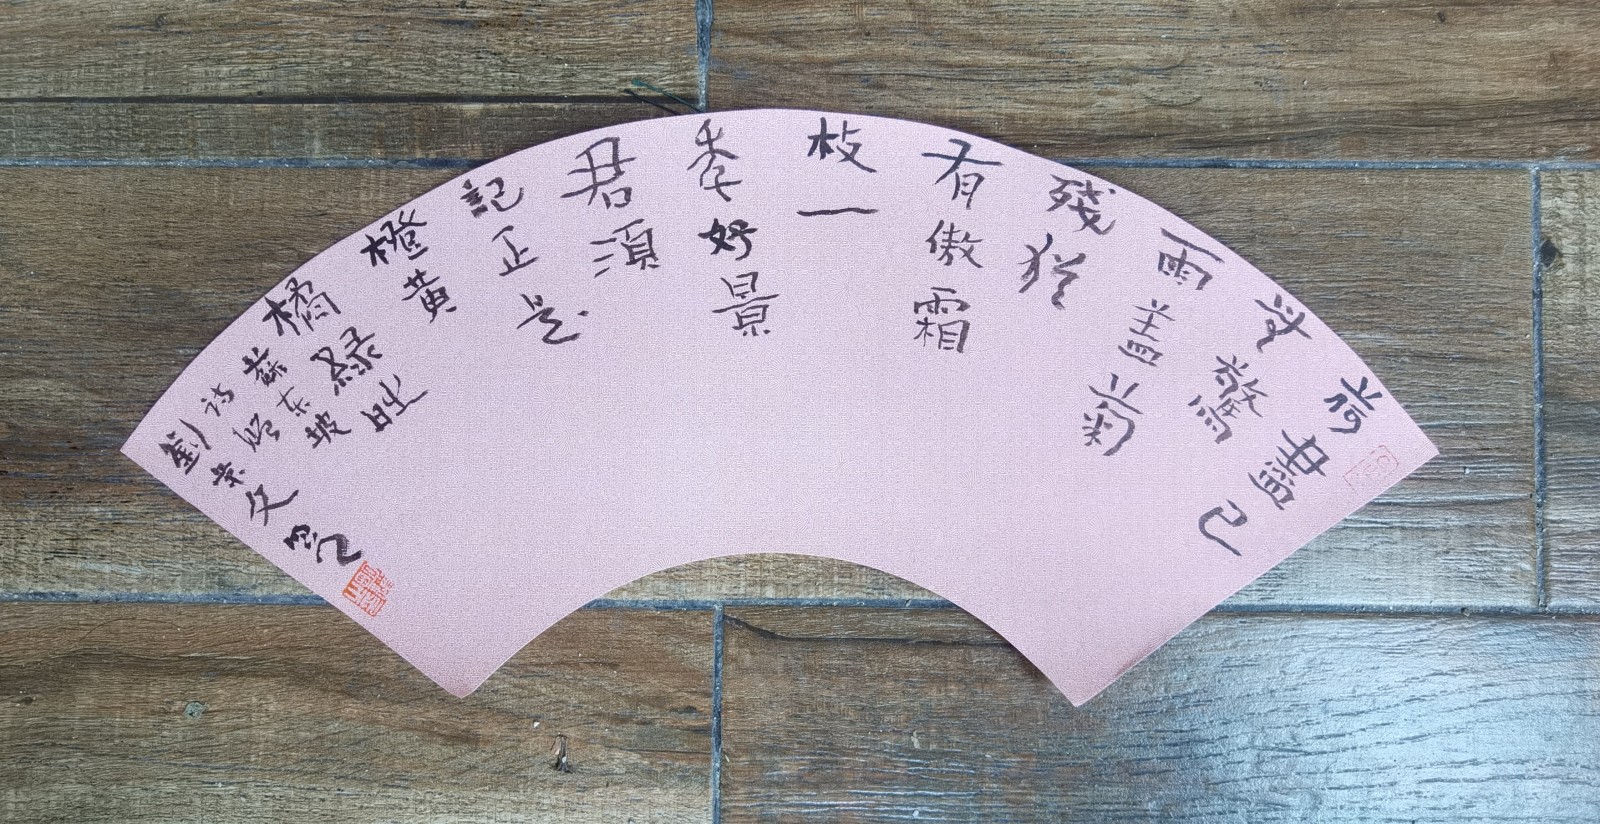 荷盡已
無驚
雨蓋菊
殘猶
有傲霜
枝一
秊好景
君須
記正是
橙黃
橘綠時
蘇东坡
诗
劉文